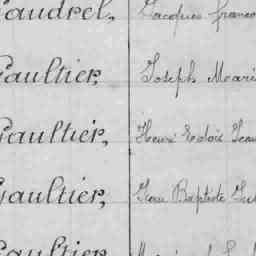 Gaudrel, Jacques Franco
Gaultier, Joseph Marie
Gaultier, Henri Eloi Jean
Gaultier, Jean Baptiste
Gaultier,